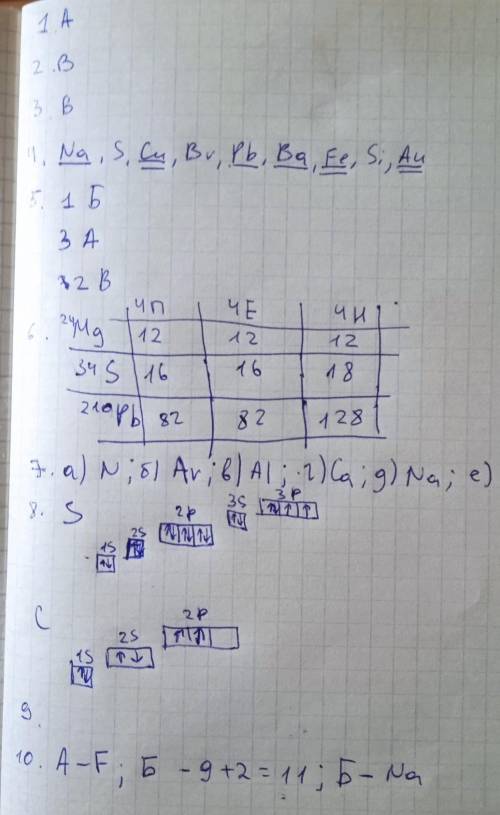 1. А
2. В
3. В
4. Na, S, Cu, Br, Pb, Ba, Fe, Si, Au
5. 1 Б
3 А
2 В
ЧП ЧЕ ЧН
6. 24Mg 12 12 12
34S 16 16 18
210Pb 82 82 128
7. а) N; б) Ar; в) Al; г) Ca; д) Na; е)
8. S
1S ↑↓ 2S ↑↓ 2P ↑↓ ↑↓ ↑↓ 3S ↑↓ 3P ↑↓ ↑ ↑
C
1S ↑↓ 2S ↑↓ 2P ↑ ↑
9.
10. А - F; Б - 9+2=11; Б - Na